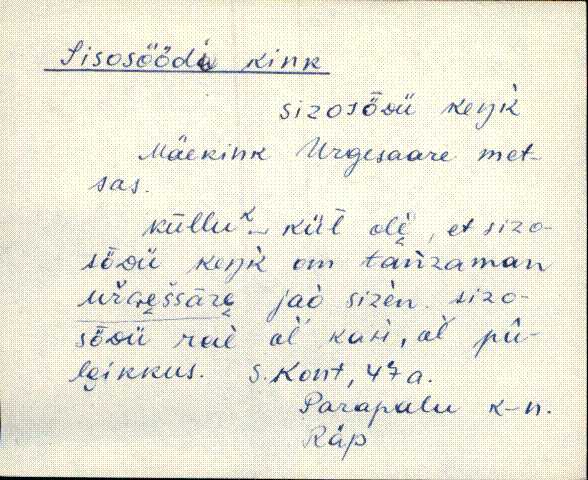 Sisosöödü kink
sizosöDü keŋk̀
Mäekink Urgesaare met-
sas.
külluᴷ‿ kül olè, et sizo-
söDü keŋk̀ om tańzaman
ŭrGeššāre jaò sizèn. sizo-
söDü
ol kuři, ol pü-
S. Kont, 47 a.
Parapalu k-n.
Räp